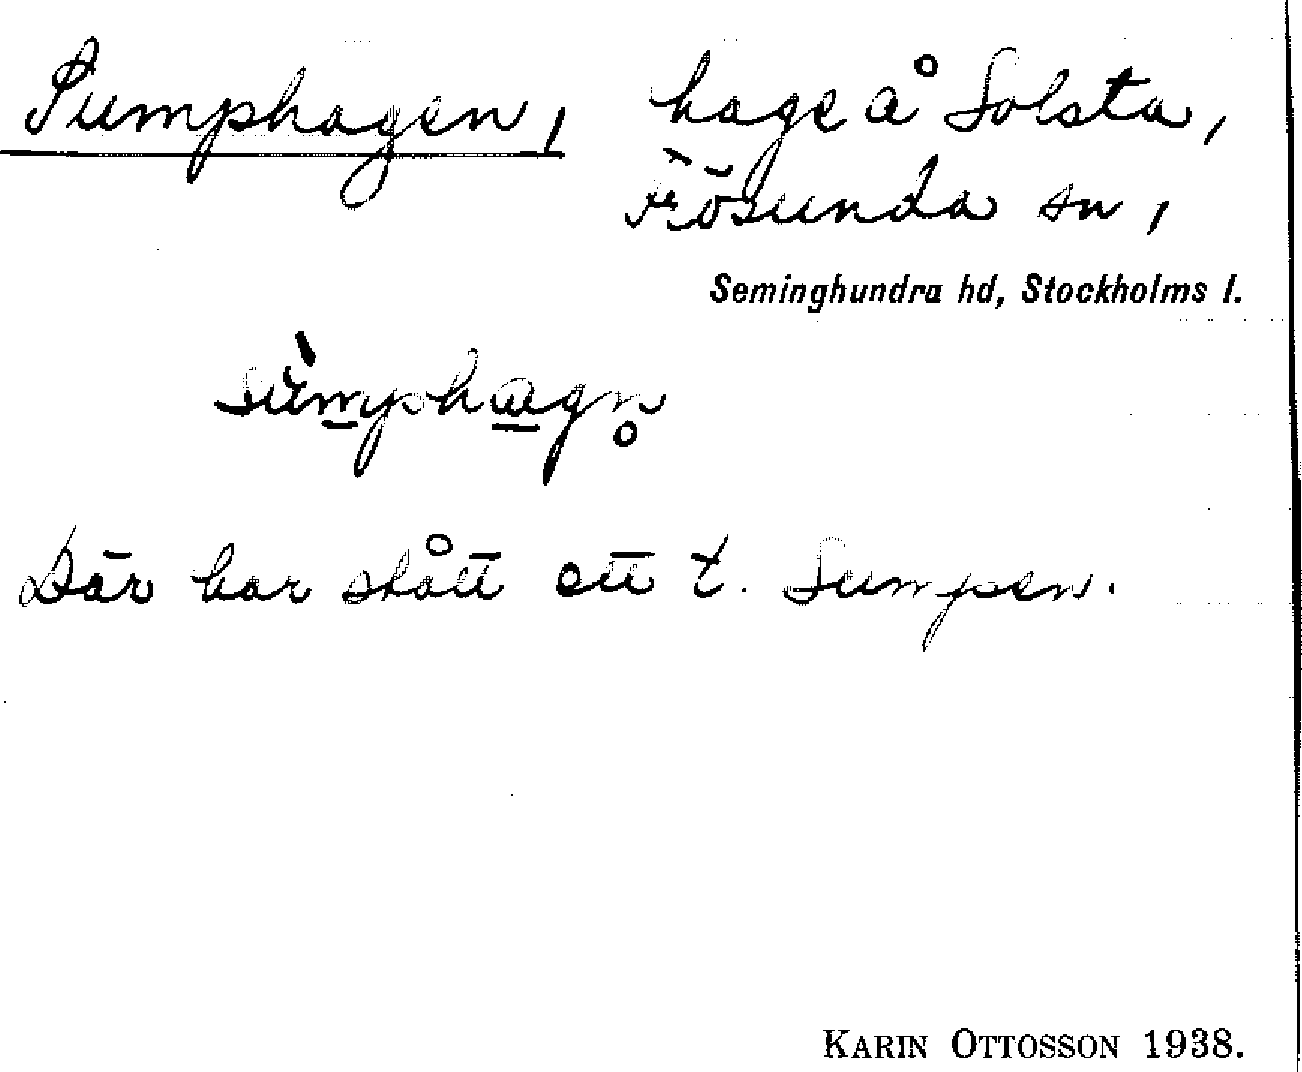 Sumphagen, hage å Solsta,
Frösunda sn,
Seminghundra hd, Stockholms l.
sùmphagn̥
Där har stått ett t. Sumpen.
KARIN OTTOSSON 1938.